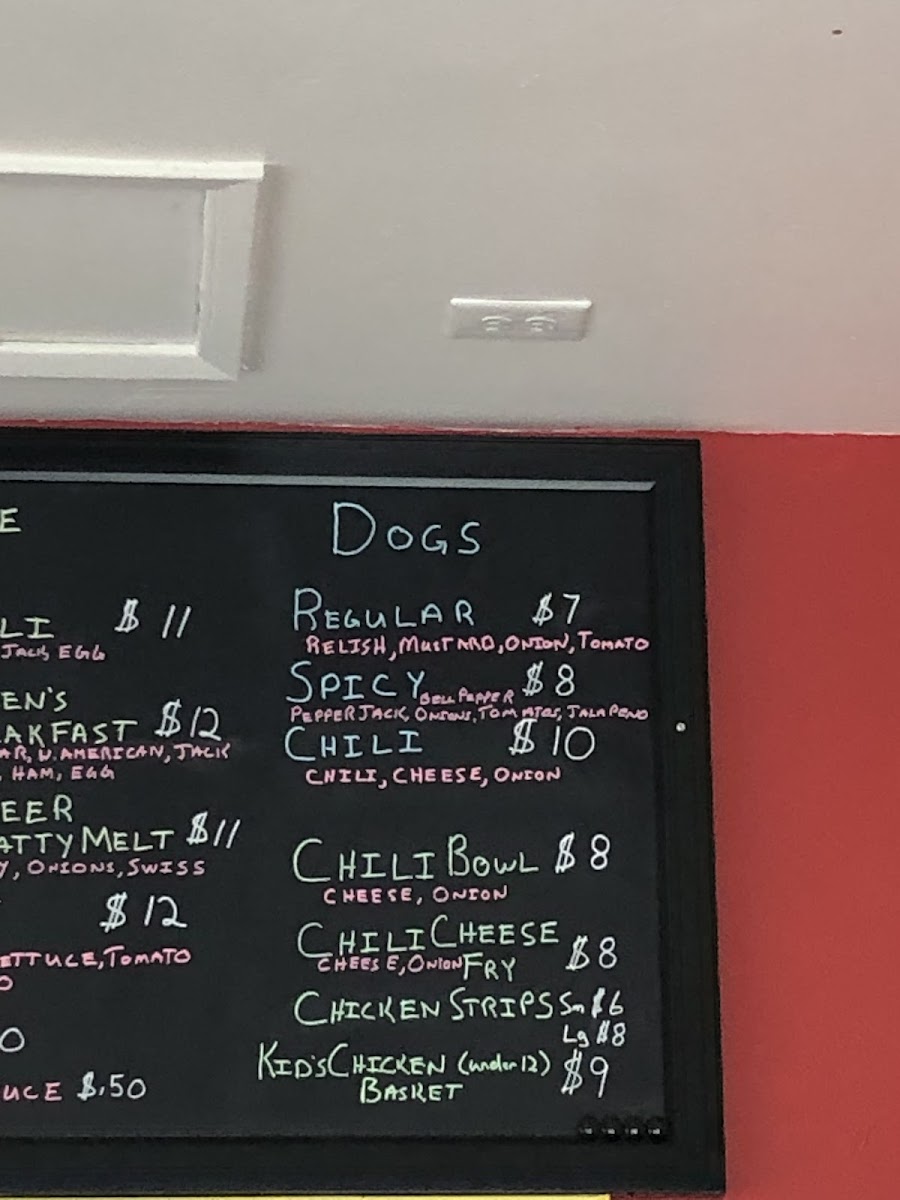 E
LI $11
JACK, EGG
EN'S
AKFAST $12
AR, W. AMERICAN, JACK
, HAM, EGG
EER
ATTY MELT $11
Y, ONIONS, SWISS
$12
ETTUCE, TOMATO
O
O
UCE $.50
DOGS
REGULAR $7
RELISH, MUSTARD, ONION, TOMATO
SPICY $8
BELL PEPPER
PEPPERJACK, ONIONS, TOMATOES, JALAPENO
CHILI $10
CHILI, CHEESE, ONION
CHILI BOWL $8
CHEESE, ONION
CHILI CHEESE
CHEESE, ONION FRY $8
CHICKEN STRIPS Sm $6
Lg $8
KID'S CHICKEN (under 12) $9
BASKET